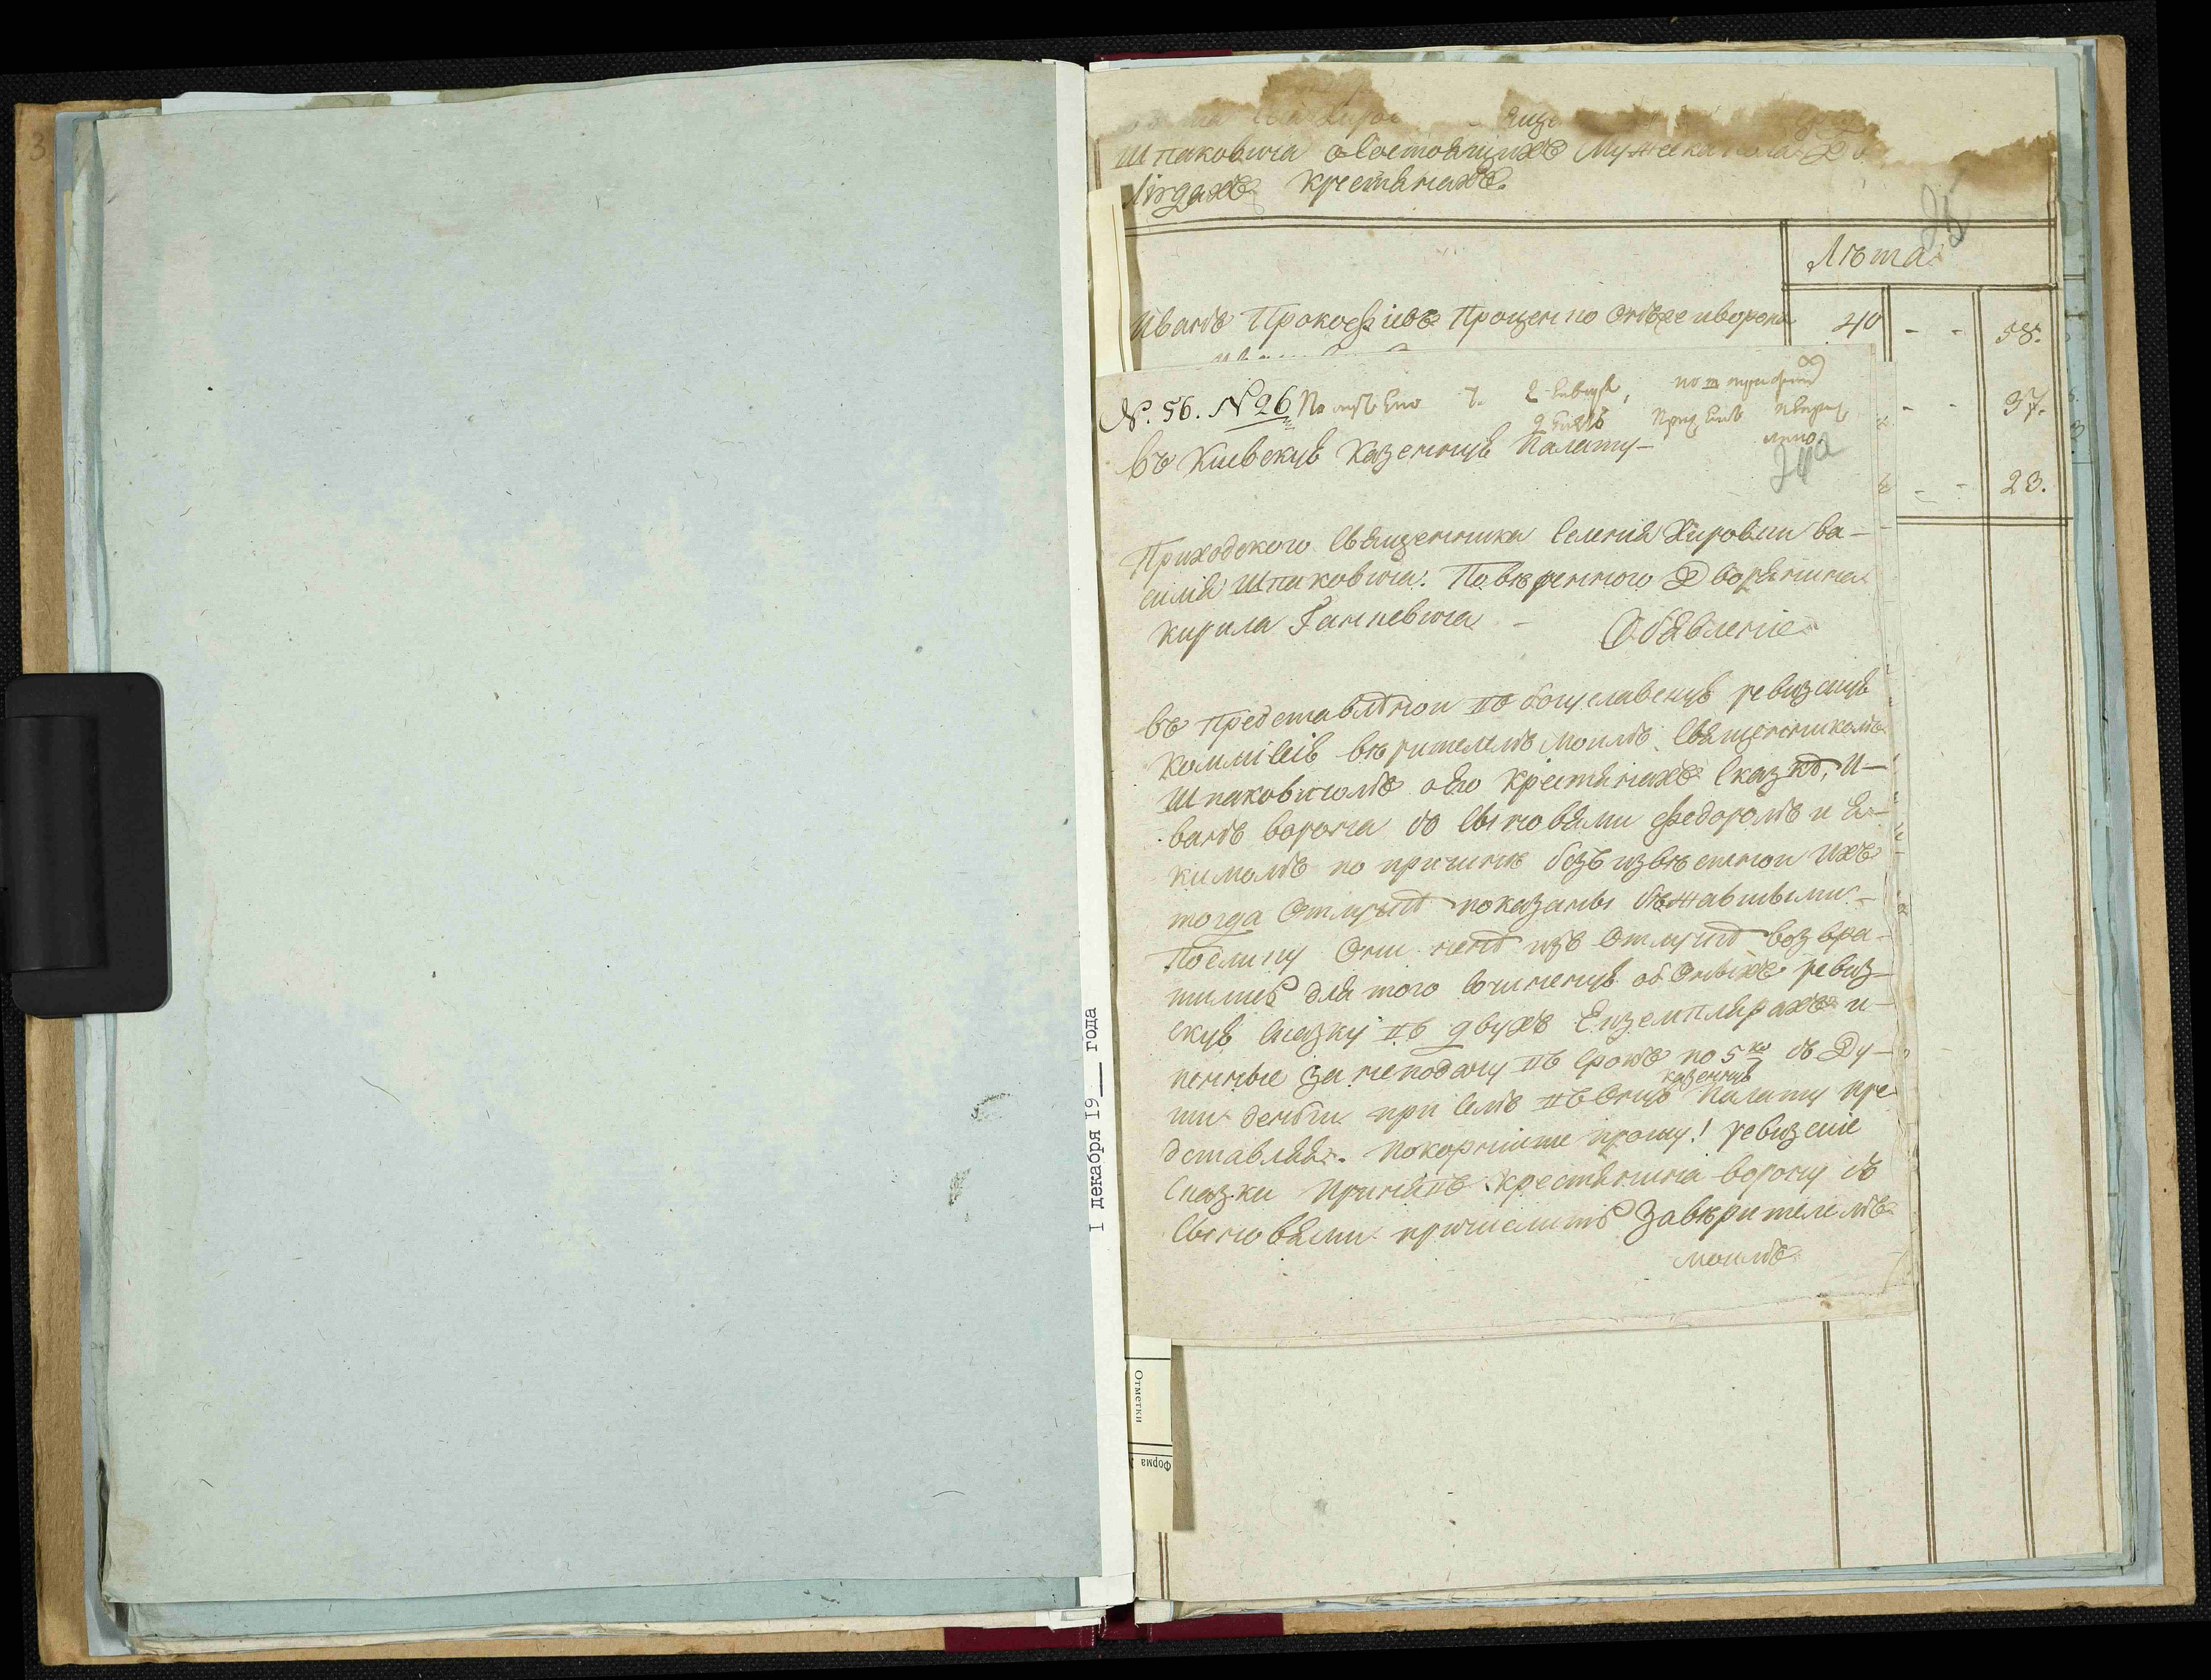 3
Шпаковича о состоящихъ Мужеска пола
Людяхъ крестянахъ.
25
Лѣта
Иванъ Прокофіевъ Проценко онъ же и ворона 40 - - 58.
- - 37.
- - 23.
№. 56. №26 Получено 7. Генваря,
24а
Въ Киевскую Казенную Палату
Приходского Священника Селенія Хировки Ва-
силія Шпаковича. Повѣренного Дворянина
Кирила Ганкевича
Объявленіе
Въ представленной въ богуславскую ревизскую
Коммісію вѣрителемъ моимъ Священникомъ
Шпаковичомъ о его Крестянахъ Сказкѣ, И-
ванъ ворона съ Сыновями Федоромъ и Я-
кимомъ по причинѣ безъизвѣстной ихъ
тогда Отлучки показаны бѣжавшыми.
Поелику Они нынѣ изъ Отлучки возвра-
тились для того Сочиненую об Оныхъ ревиз-
скую Сказку въ двухъ Екземплярахъ и
пенные за неподачу въ Срокъ по 5 ко съ Ду-
ши деньги при Семъ въ Оную казенную Палату пре
дставляя. Покорнѣйше прошу! ревизские
Сказки Принявъ крестянина ворону съ
Сыновями причислить За вѣрителемъ
моимъ
I декабря 19___ года
Отметки
Форма